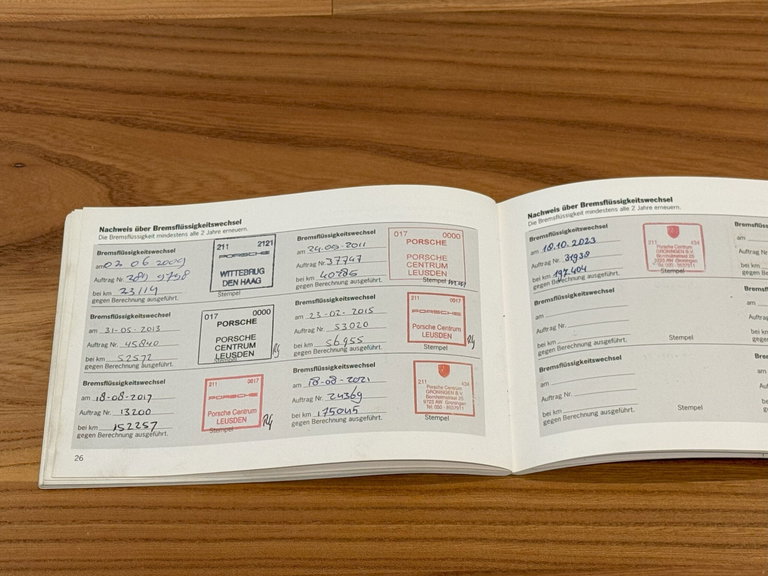 Nachweis über Bremsflüssigkeitswechsel
Die Bremsflüssigkeit mindestens alle 2 Jahre erneuern.
Bremsflüssigkeitswechsel
am 02 06 2009
Auftrag Nr.
bei km 23114
gegen Berechnung ausgeführt.
211 2121
PORSCHE
WITTEBRUG
DEN HAAG
Stempel
Bremsflüssigkeitswechsel
am 24-05-2011
Auftrag Nr. 37747
bei km 40785
gegen Berechnung ausgeführt.
017 0000
PORSCHE
PORSCHE
CENTRUM
LEUSDEN
Stempel
Bremsflüssigkeitswechsel
am 31-05-2013
Auftrag Nr. 45840
bei km 52572
gegen Berechnung ausgeführt.
017 0000
PORSCHE
PORSCHE
CENTRUM
LEUSDEN
Stempel
Bremsflüssigkeitswechsel
am 23-02-2015
Auftrag Nr. 53020
bei km 56955
gegen Berechnung ausgeführt.
211 0017
PORSCHE
Porsche Centrum
LEUSDEN
Stempel
Bremsflüssigkeitswechsel
am 18-08-2017
Auftrag Nr. 13200
bei km 152257
gegen Berechnung ausgeführt.
211 0017
PORSCHE
Porsche Centrum
LEUSDEN
Stempel
Bremsflüssigkeitswechsel
am 18-08-2021
Auftrag Nr. 24369
bei km 175045
gegen Berechnung ausgeführt.
211 434
Porsche Centrum
GRONINGEN B.V.
9723 AW Groningen
Stempel
26
Nachweis über Bremsflüssigkeitswechsel
Die Bremsflüssigkeit mindestens alle 2 Jahre erneuern.
Bremsflüssigkeitswechsel
am 18.10.2023
Auftrag Nr. 31938
bei km 197.404
gegen Berechnung ausgeführt.
211 434
Porsche Centrum
GRONINGEN B.V.
9723 AW Groningen
Stempel
Bremsflüssigkeitswechsel
am
Auftrag Nr.
bei km
gegen Berechnung ausgeführt.
Stempel
Bremsflüssigkeitswechsel
am
Auftrag Nr.
bei km
gegen Berechnung ausgeführt.
Stempel
am
Auftrag Nr.
bei km
am
Auftrag Nr.
bei km
am